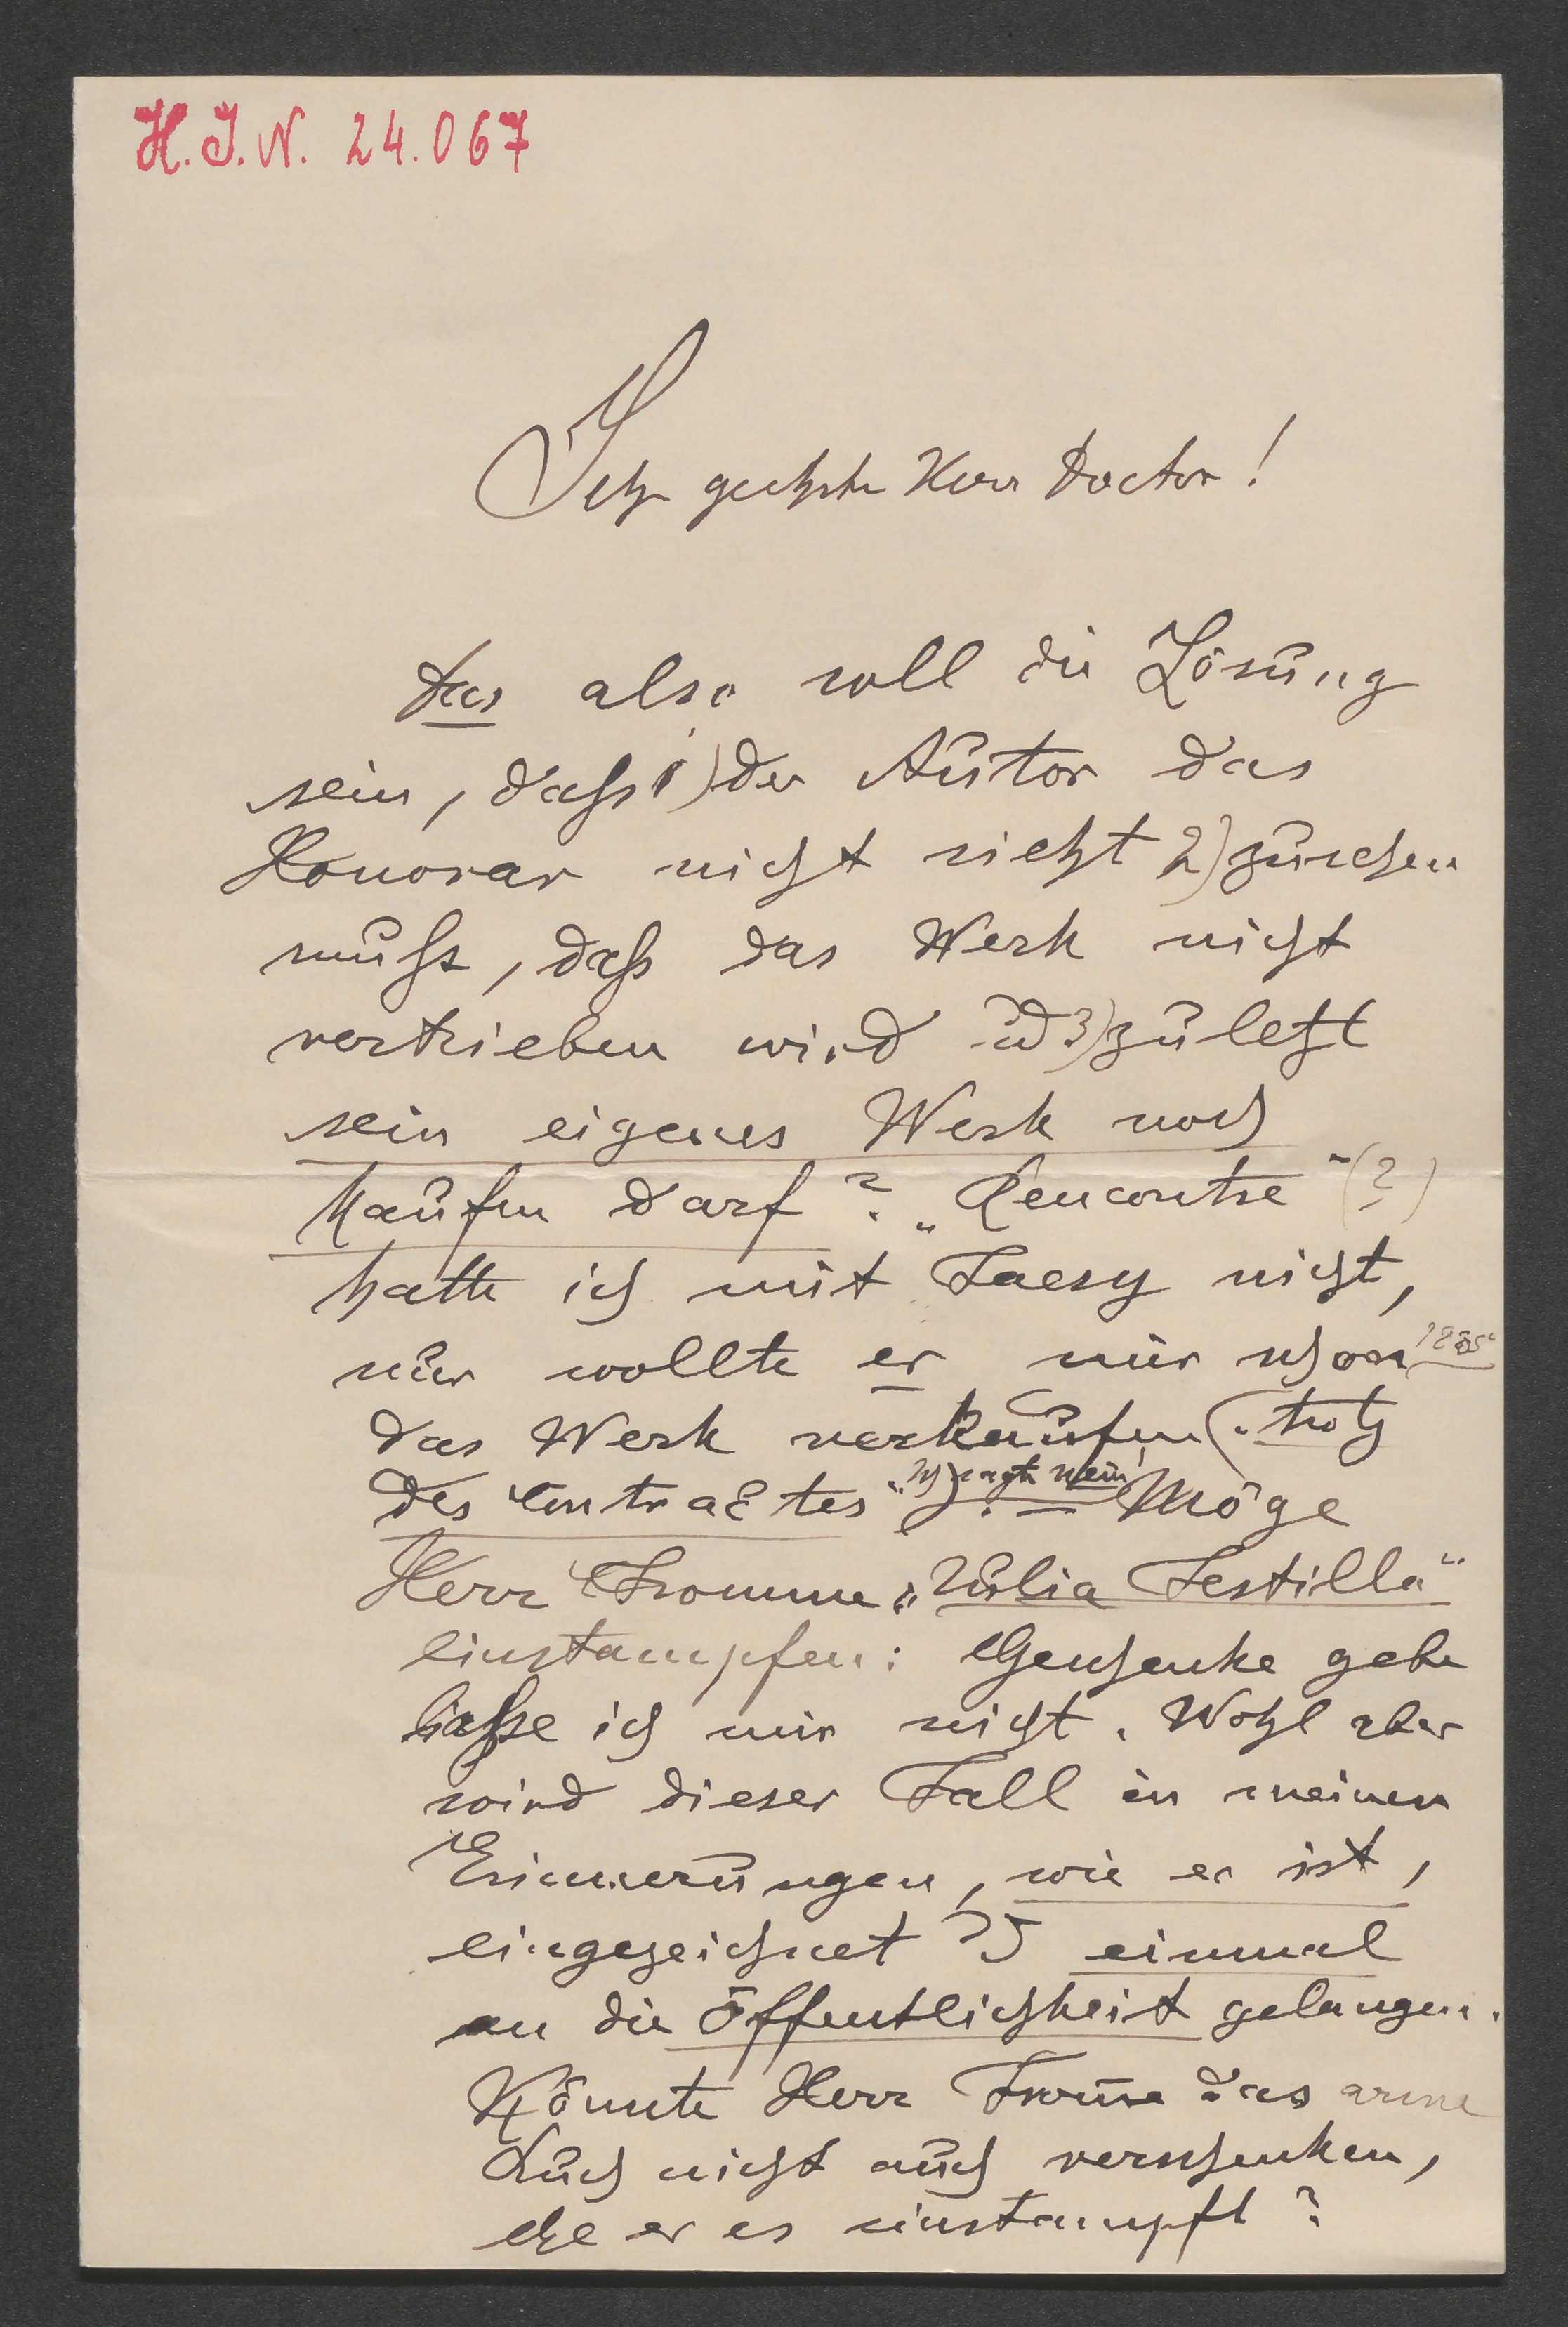 H. J. N. 24.067
Sehr geehrter Herr Doctor!
Das also soll die Lösung
sein, dass 1) der Autor das
Honorar nicht sieht 2) zusehen
muss, dass das Werk nicht
vertrieben wird ud 3) zuletzt
sein eigenes Werk noch
kaufen darf? „Rencontre“ (?)
hatte ich mit Faesy nicht,
nur wollte er mir schon
das Werk verkaufen (trotz
des Contractes „Ich sagte nein!“). – Möge
Herr Fromme „Julia Festilla“
einstampfen: Geschenke gebe
lasse ich mir nicht. Wohl aber
wird dieser Fall in meinen
Erinnerungen, wie er ist,
eingezeichnet & einmal
an die Öffentlichkeit gelangen.
Könnte Herr Frome das arme
Buch nicht auch verschenken,
ehe er es einstampft?